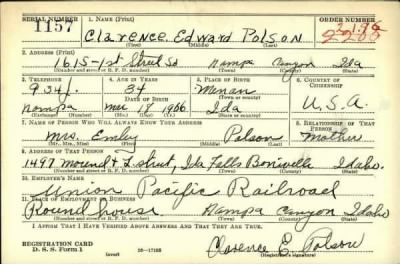 SERIAL NUMBER 1. NAME (Print) ORDER NUMBER
1157 Clarence Edward Polson
(First) (Middle) (Last)
2. ADDRESS (Print)
1615-1st Street So Nampa Canyon Ida
(Number and street or R. F. D. number) (Town) (County) (State)
3. TELEPHONE 4. AGE IN YEARS 5. PLACE OF BIRTH 6. COUNTRY OF CITIZENSHIP
934J. 34 Menan
DATE OF BIRTH (Town or county)
Nampa 1906 Ida U.S.A.
(Exchange) (Mo.) (Day) (Yr.) (State or country)
7. NAME OF PERSON WHO WILL ALWAYS KNOW YOUR ADDRESS 8. RELATIONSHIP OF THAT PERSON
Mrs. Polson Mother
(Mr., Mrs., Miss) (First) (Middle) (Last)
9. ADDRESS OF THAT PERSON
1497 Mound Ida Falls Idaho.
(Number and street or R. F. D. number) (Town) (County) (State)
10. EMPLOYER'S NAME
Union Pacific Railroad
11. PLACE OF EMPLOYMENT OR BUSINESS
Roundhouse Nampa Canyon Idaho
(Number and street or R. F. D. number) (Town) (County) (State)
I AFFIRM THAT I HAVE VERIFIED ABOVE ANSWERS AND THAT THEY ARE TRUE.
REGISTRATION CARD
D. S. S. Form 1 (over) 16-17105 Clarence E. Polson
(Registrant's signature)